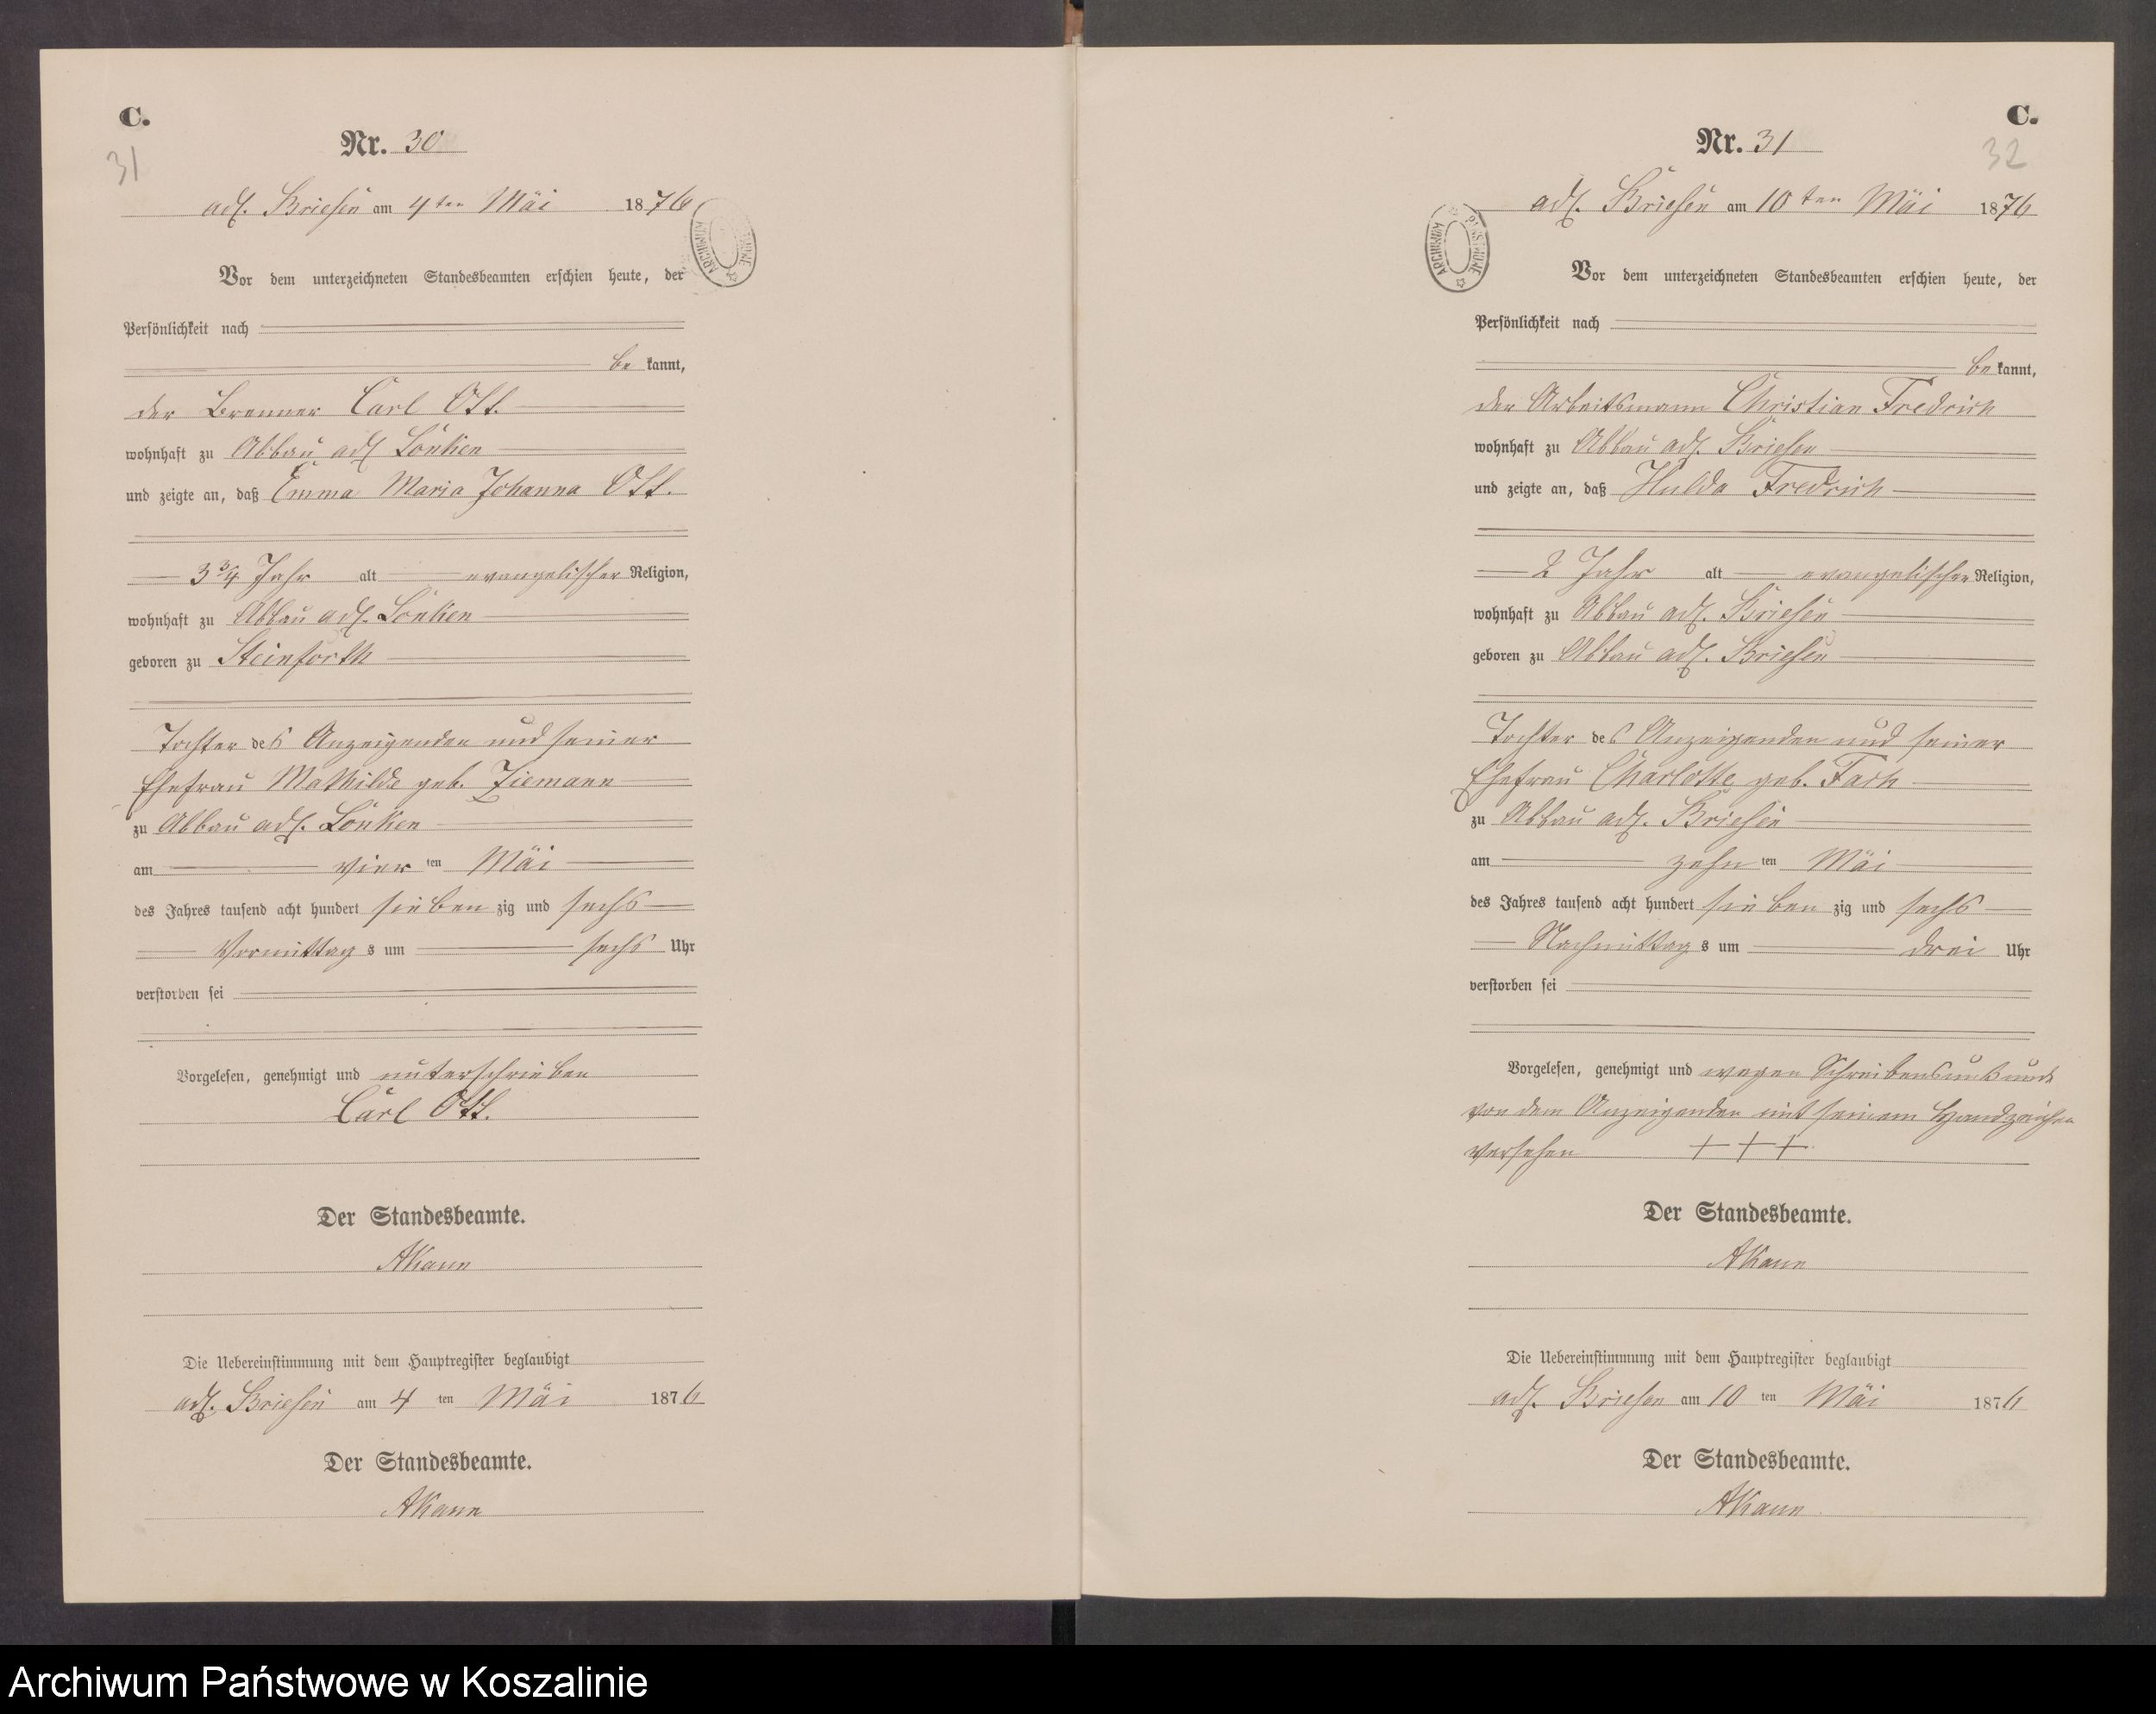 C.
31
Nr. 30
adl. Briesen am 4ten Mai 1876
Vor dem unterzeichneten Standesbeamten erschien heute, der
Persönlichkeit nach
be kannt,
der Brenner Carl Ott.
wohnhaft zu Abbau adl. Lönken
und zeigte an, daß Emma Maria Johanna Ott.
3 3/4 Jahr alt evangelischer Religion,
wohnhaft zu Abbau adl. Lönken
geboren zu Steinforth
Tochter des Anzeigenden und seiner
Ehefrau Mathilde geb. Ziemann
zu Abbau adl. Lönken
am vier ten Mai
des Jahres tausend acht hundert sieben zig und sechs
Vormittag s um sechs Uhr
verstorben sei
Vorgelesen, genehmigt und unterschrieben
Carl Ott.
Der Standesbeamte.
AKann
Die Uebereinstimmung mit dem Hauptregister beglaubigt
adl. Briesen am 4 ten Mai 1876
Der Standesbeamte.
AKann
C.
32
Nr. 31
adl. Briesen am 10 ten Mai 1876
ARCHIWUM PAŃSTWOWE
Vor dem unterzeichneten Standesbeamten erschien heute, der
Persönlichkeit nach
be kannt,
der Arbeitsmann Christian Fredrich
wohnhaft zu Abbau adl. Briesen
und zeigte an, daß Hulda Fredrich
2 Jahr alt evangelischer Religion,
wohnhaft zu Abbau adl. Briesen
geboren zu Abbau adl. Briesen
Tochter des Anzeigenden und seiner
Ehefrau Charlotte geb. Fach
zu Abbau adl. Briesen
am zehn ten Mai
des Jahres tausend acht hundert sieben zig und sechs
Nachmittag s um drei Uhr
verstorben sei
Vorgelesen, genehmigt und wegen Schreibensunkunde
von dem Anzeigenden mit seinem Handzeichen
versehen +++
Der Standesbeamte.
AKann
Die Uebereinstimmung mit dem Hauptregister beglaubigt
adl. Briesen am 10 ten Mai 1876
Der Standesbeamte.
AKann
Archiwum Państwowe w Koszalinie